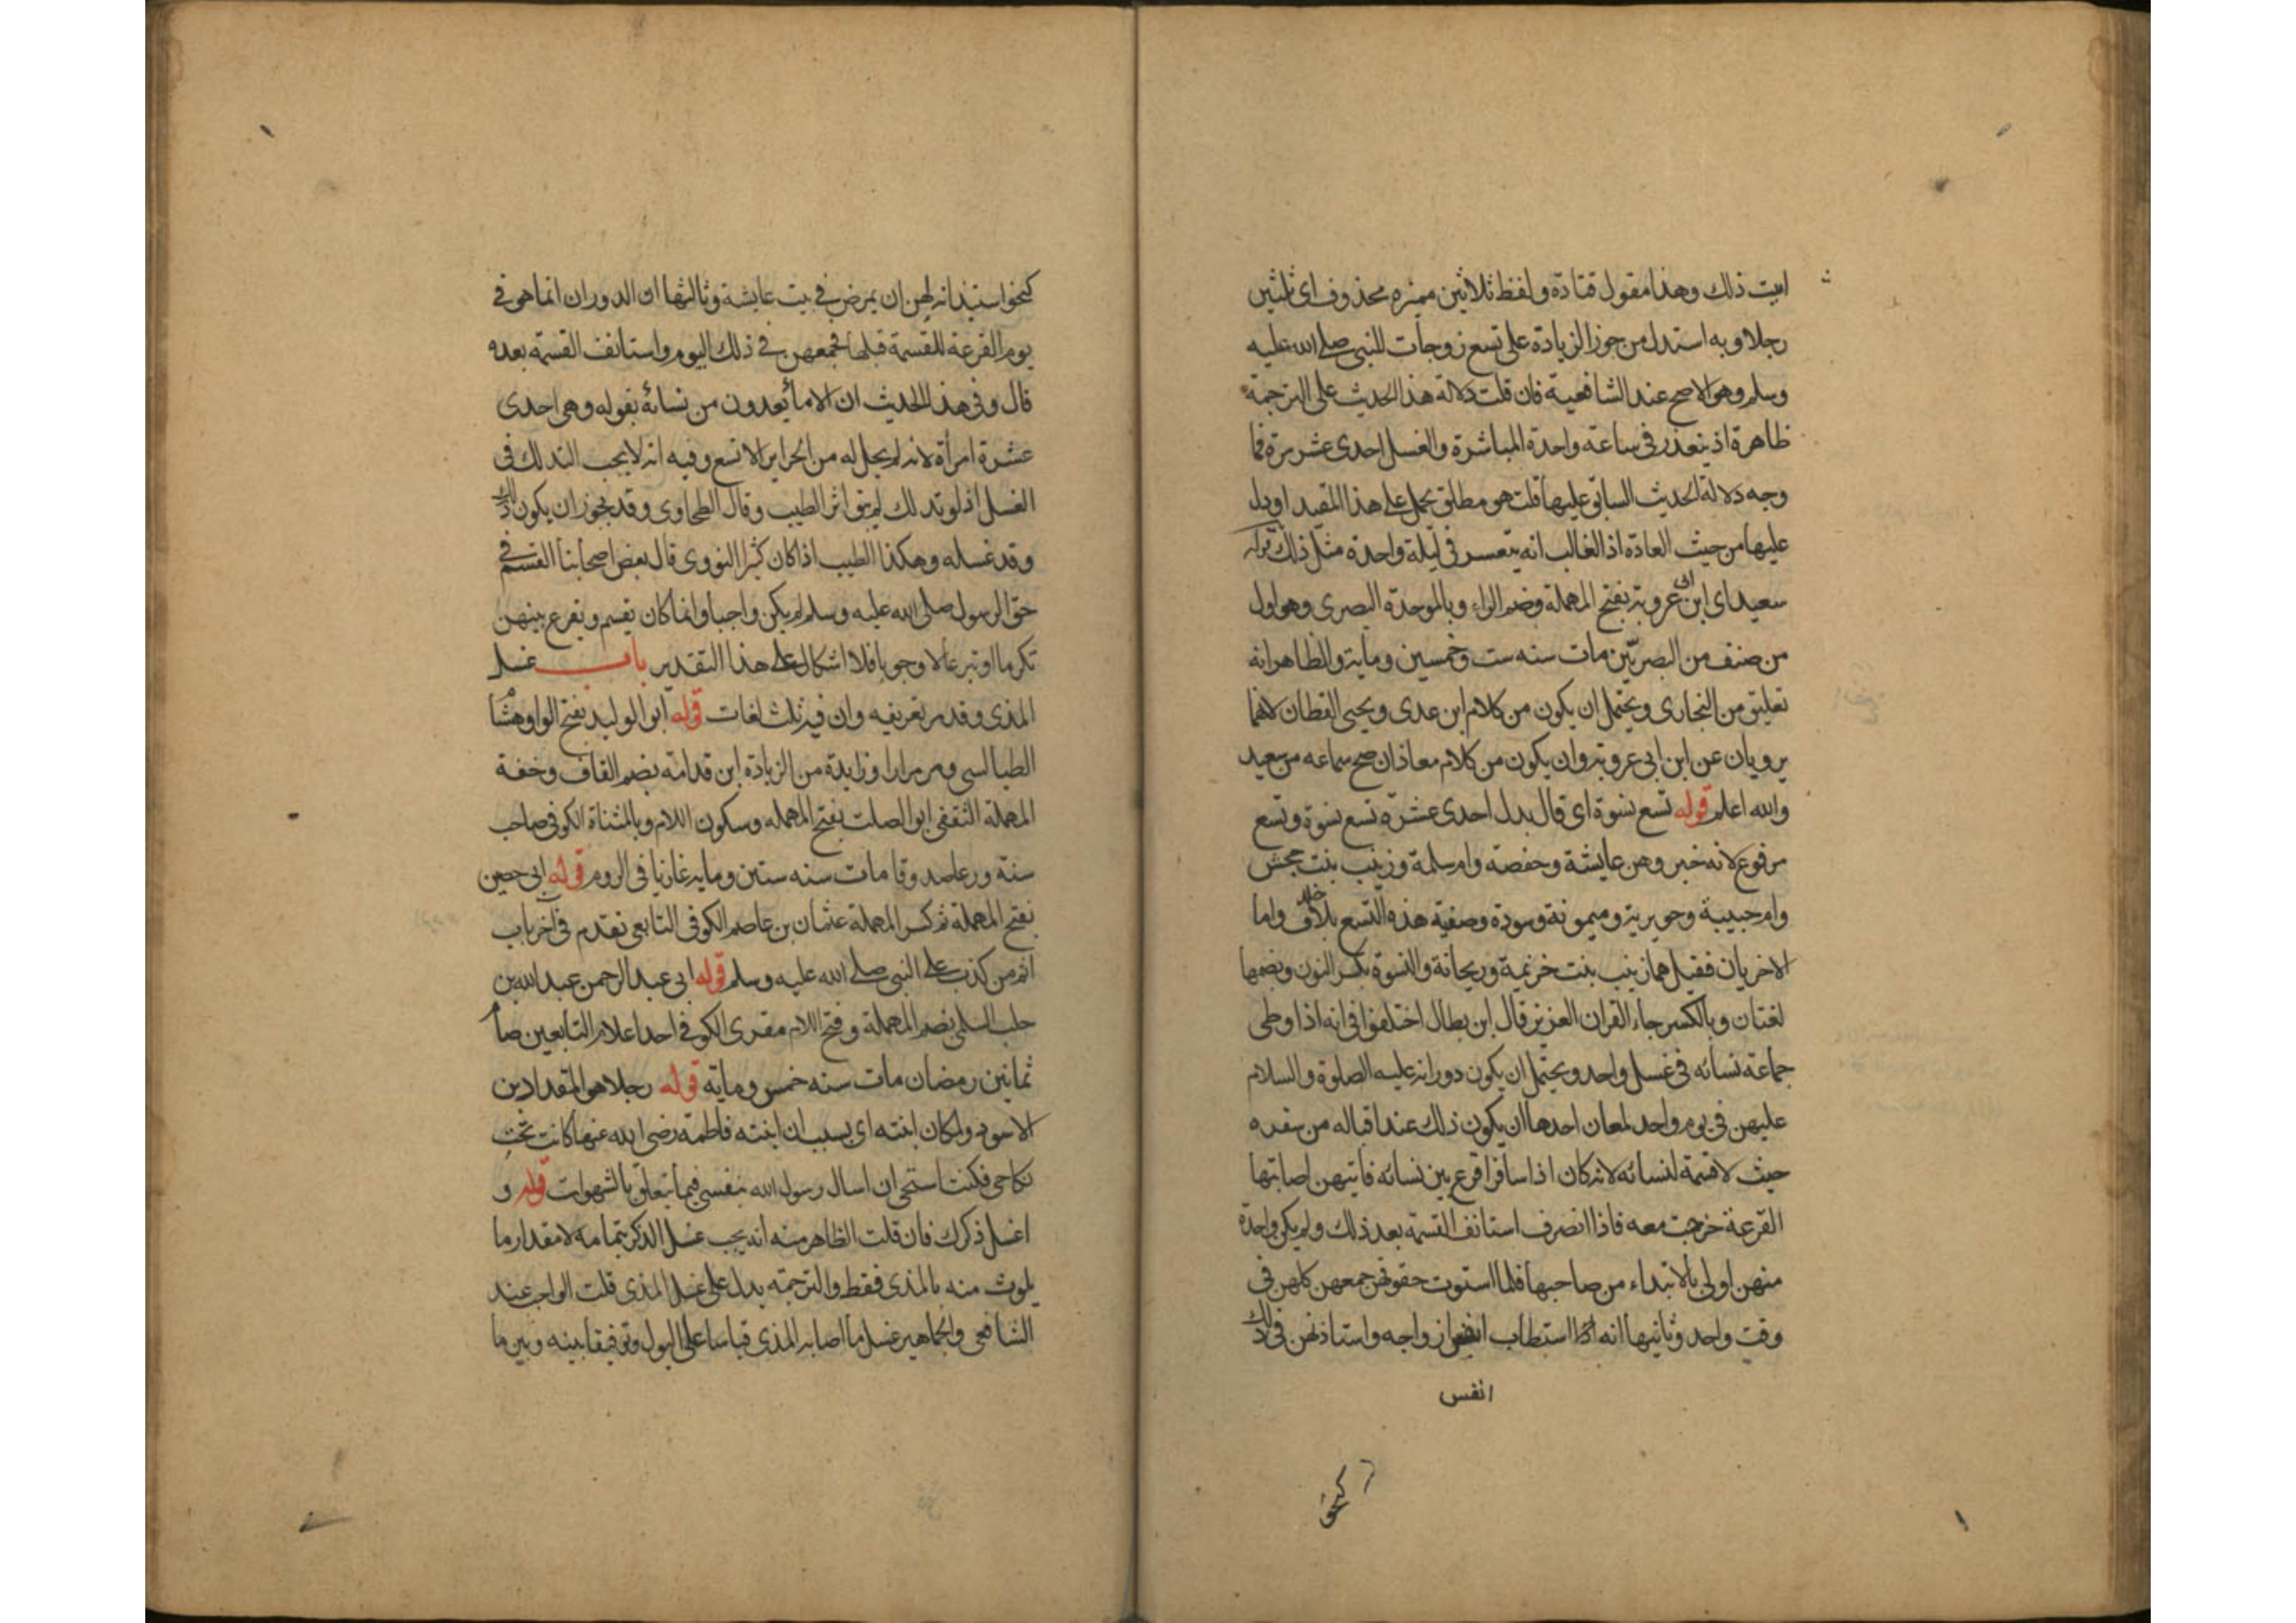 اثبت ذلك وهذا مقول قتادة ولفظ ثلاثين مميزه محذوف اى ثلثين
رجلا وبه استدل من جوز الزيادة على تسع زوجات للنبى صلى الله عليه
وسلم وهو الاصح عند الشافعية فان قلت دلالة هذا الحديث على الترجمة
ظاهرة اذ يتعذر فى ساعة واحدة المباشرة والغسل احدى عشر مرة فما
وجه دلالة الحديث السابق عليها قلت هو مطلق يحمل على هذا المقيد او يدل
عليها من حيث العادة اذ الغالب انه يتعسر فى ليلة واحدة مثل ذلك قوله
سعيد اى ابن ابى عروبة بفتح المهملة وضم الراء وبالموحدة البصرى وهو اول
من صنف من البصريين مات سنه ست وخمسين وماية والظاهر انه
تعليق من البخارى ويحتمل ان يكون من كلام ابن عدى ويحيى القطان لانهما
يرويان عن ابن ابى عروبة وان يكون من كلام معاذ ان صح سماعه من سعيد
والله اعلم قوله تسع نسوة اى قال بدل احدى عشرة تسع نسوة وتسع
مرفوع لانه خبر وهن عايشة وحفصة وام سلمة وزينب بنت جحش
وام حبيبة وجويرية وميمونة وسودة وصفية هذه التسع بلا خلاف واما
الاخريان فقيل هما زينب بنت خزيمة وريحانة والنسوة بكسر النون وبضمها
لغتان وبالكسر جاء القران العزيز قال ابن بطال اختلفوا فى انه اذا وطى
جماعة نسائه فى غسل واحد ويحتمل ان يكون دورانه عليه الصلوة والسلام
عليهن فى يوم واحد لمعان احدها ان يكون ذلك عند اقباله من سفره
حيث لا قسمة لنسائه لانه كان اذا سافر اقرع بين نسائه فايتهن اصابتها
القرعة خرجت معه فاذا انصرف استانف القسمة بعد ذلك ولم يكن واحدة
منهن اولى بالابتداء من صاحبها فلما استوت حقوقهن جمعهن كلهن فى
وقت واحد وثانيها انه استطاب انفس ازواجه واستاذنهن فى ذلك
انفس
كنحو
كنحو استيذانه لهن ان يمرض فى بيت عايشة وثالثها ان الدوران انما هو فى
يوم القرعة للقسمة قبلها فجمعهن فى ذلك اليوم واستانف القسمة بعده
قال وفى هذا الحديث ان الاما يعدون من نسائه بقوله وهى احدى
عشرة امرأة لانه لم يحل له من الحراير الا تسع وفيه انه لا يجب التدلك فى
الغسل اذ لو تدلك لم يبق اثر الطيب وقال الطحاوى وقد يجوز ان يكون ذلك
وقد غسله وهكذا الطيب اذا كان كثيرا النووى قال بعض اصحابنا القسم فى
حق الرسول صلى الله عليه وسلم لم يكن واجبا وانما كان يقسم ويقرع بينهن
تكرما او تبرعا لا وجوبا فلا اشكال على هذا التقدير باب غسل
المذى وقد مر تعريفه وان فيه ثلث لغات قوله ابو الوليد بفتح الواو هشام
الطيالسى ومر مرارا وزايدة من الزيادة ابن قدامة بضم القاف وخفة
المهملة الثقفى ابو الصلت بفتح المهمله وسكون اللام وبالمثناة الكوفى صاحب
سنة ورعا صدوقا مات سنه ستين وماية غازيا فى الروم قوله ابى حصين
بفتح المهملة ثم كسر المهملة عثمان بن عاصم الكوفى التابعى تقدم فى اخر باب
اثم من كذب على النبى صلى الله عليه وسلم قوله ابى عبد الرحمن عبد الله بن
حبيب السلمى بضم المهملة وفتح اللام مقرى الكوفة احد اعلام التابعين صام
ثمانين رمضان مات سنه خمس وماية قوله رجلا هو المقداد بن
الاسود ولمكان ابنته اى بسبب ان ابنته فاطمة رضى الله عنها كانت تحت
نكاحى فكنت استحى ان اسال رسول الله بنفسى فيما يتعلق بالشهوات قوله و
اغسل ذكرك فان قلت الظاهر منه انه يجب غسل الذكر بتمامه لا مقدار ما
يلوث منه بالمذى فقط والترجمة يدل على غسل المذى قلت الواجب عند
الشافعى والجماهير غسل ما اصابه المذى قياسا على البول وتوفيقا بينه وبين ما